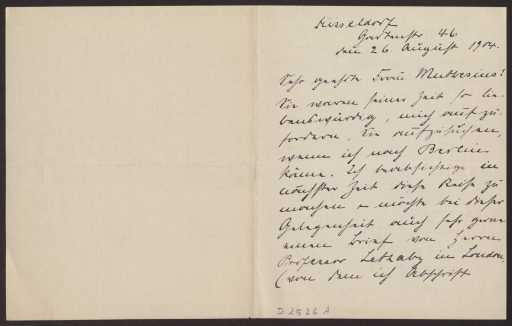 Düsseldorf
Gartenstr 46
den 26 August 1904.
Sehr geehrte Frau Muthesius!
Sie waren seiner Zeit so lie-
benswürdig, mich aufzu-
fordern, Sie aufzusuchen,
wenn ich nach Berlin
käme. Ich beabsichtige in
nächster Zeit diese Reise zu
machen & möchte bei dieser
Gelegenheit auch sehr gerne
einen Brief von Herrn
Professor Lethaby in London
(von dem ich Abschrift
D 2526 A